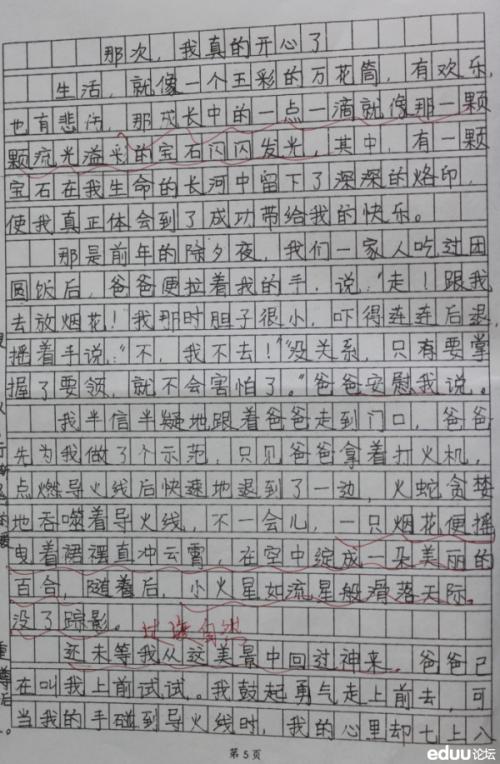 那次，我真的开心了
生活，就像一个五彩的万花筒，有欢乐，
也有悲伤，那成长中的一点一滴就像那一颗
颗流光溢彩的宝石闪闪发光，其中，有一颗
宝石在我生命的长河中留下了深深的烙印，
使我真正体会到了成功带给我的快乐。
那是前年的除夕夜，我们一家人吃过团
圆饭后，爸爸便拉着我的手，说：“走！跟我
去放烟花！”我那时胆子很小，吓得连连后退，
摇着手说：“不，我不去！”“没关系，只有要掌
握了要领，就不会害怕了。”爸爸安慰我说。
我半信半疑地跟着爸爸走到门口，爸爸
先为我做了个示范，只见爸爸拿着打火机，
点燃导火线后快速地退到了一边，火蛇贪婪
地吞噬着导火线，不一会儿，一只烟花便摇
曳着裙摆直冲云霄，在空中绽成一朵美丽的
百合，随着后，小火星如流星般滑落天际。
没了踪影。过渡自然
还未等我从这美景中回过神来。爸爸已
在叫我上前试试。我鼓起勇气走上前去，可
当我的手碰到导火线时，我的心里却七上八
第5页
eduu论坛